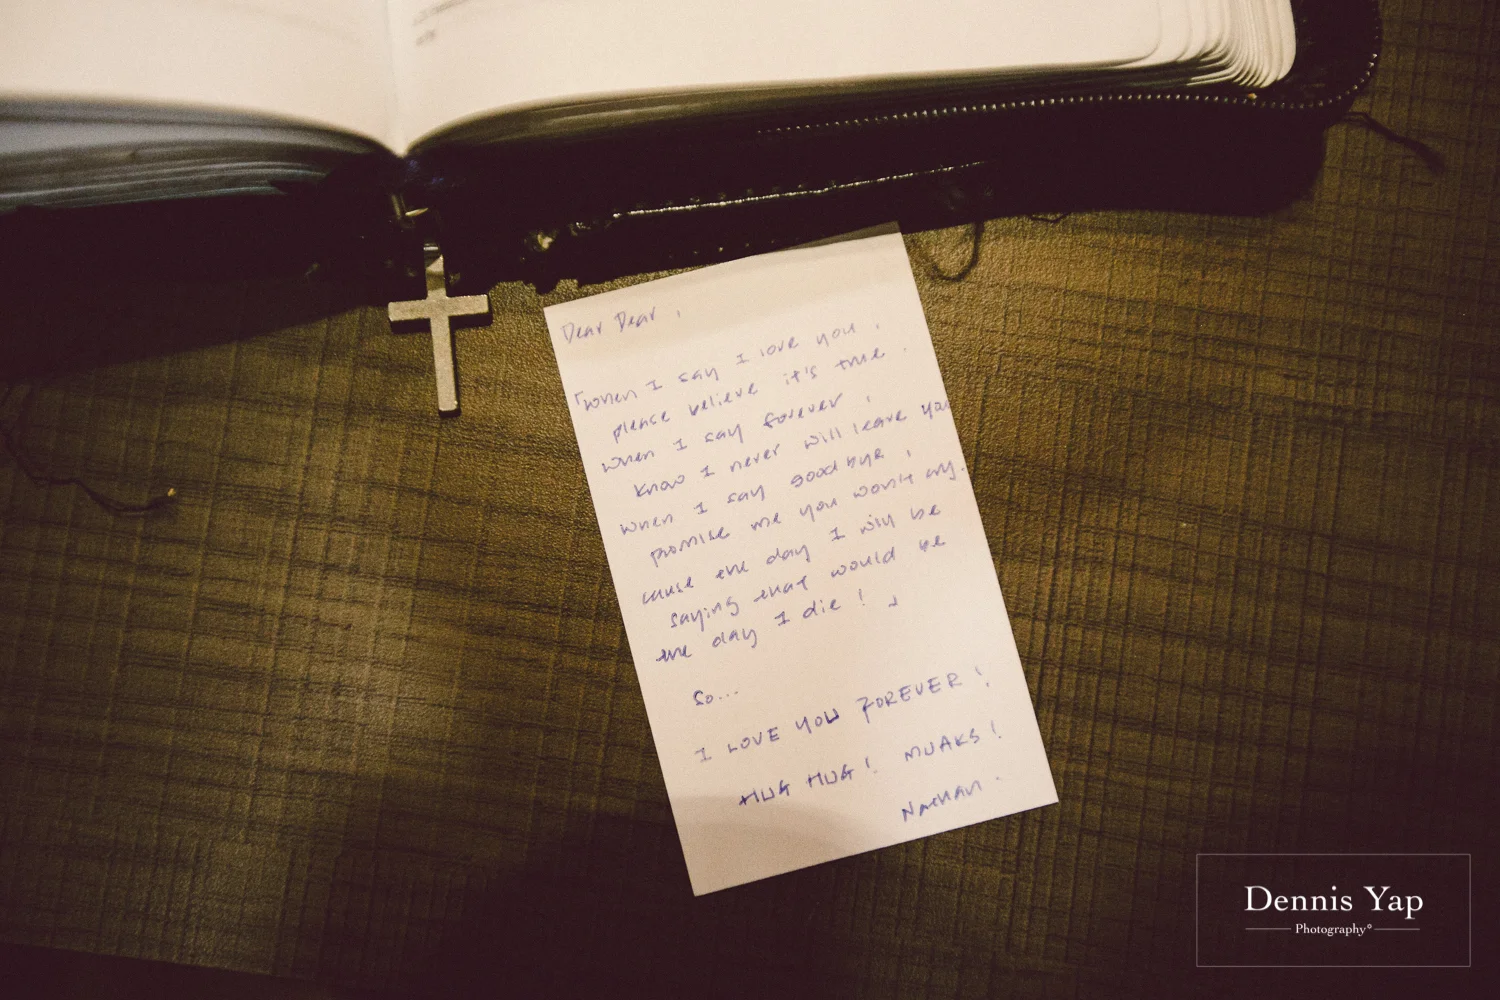 Dear Dear,
「When I say I love you,
please believe it's true.
When I say forever,
know I never will leave you
When I say goodbye,
promise me you won't cry.
cause the day I will be
saying that would be
the day I die! 」
So...
I LOVE YOU FOREVER!
HUG HUG! MUAKS!
Nathan.
Dennis Yap
Photography°